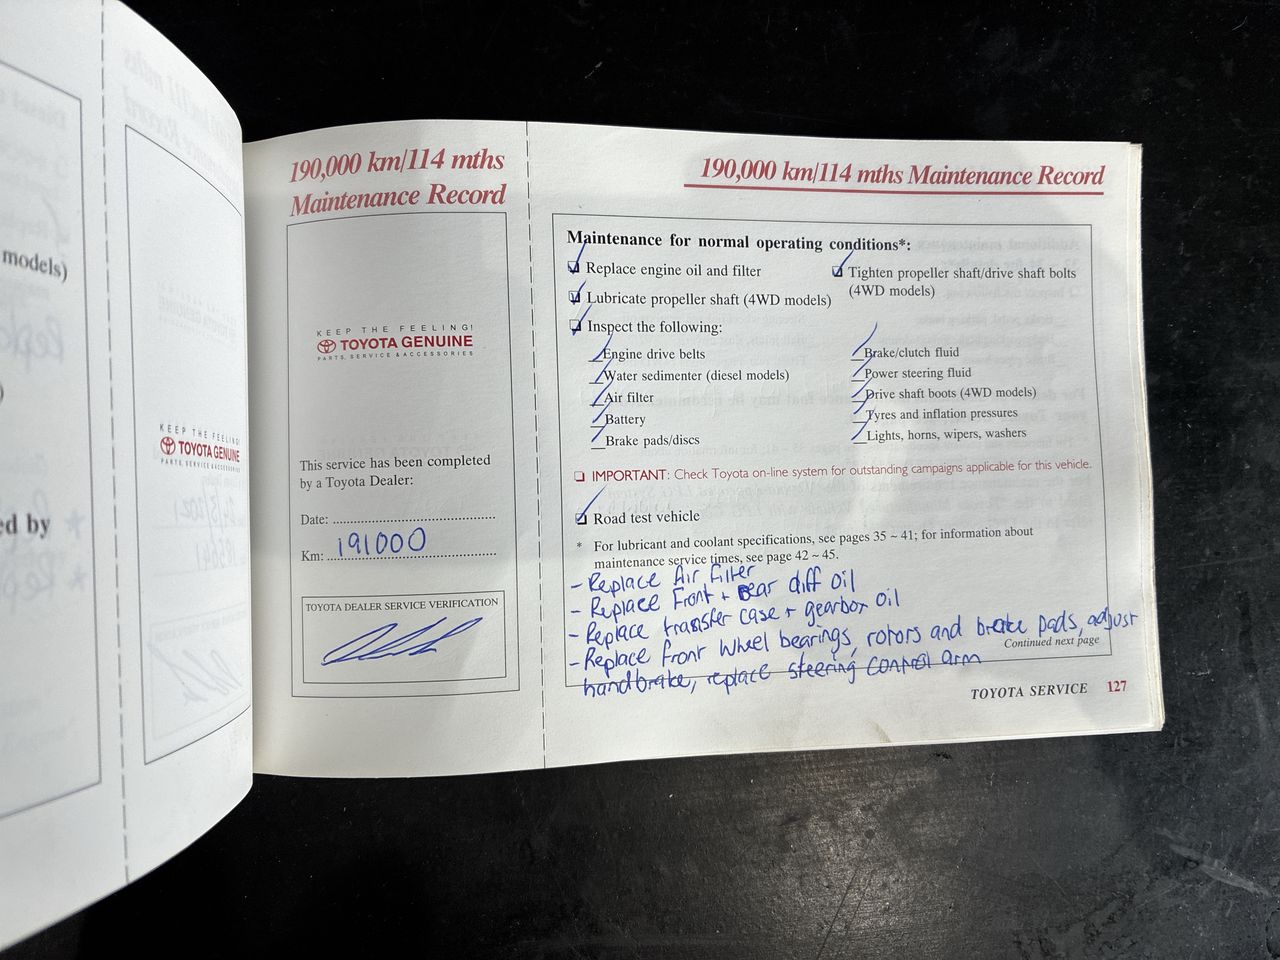 models)
)
ed by
KEEP THE FEELING!
TOYOTA GENUINE
PARTS, SERVICE & ACCESSORIES
190,000 km/114 mths
Maintenance Record
KEEP THE FEELING!
TOYOTA GENUINE
PARTS, SERVICE & ACCESSORIES
This service has been completed
by a Toyota Dealer:
Date:
Km: 191000
TOYOTA DEALER SERVICE VERIFICATION
190,000 km/114 mths Maintenance Record
Maintenance for normal operating conditions*:
Replace engine oil and filter
Lubricate propeller shaft (4WD models)
Inspect the following:
Engine drive belts
Water sedimenter (diesel models)
Air filter
Battery
Brake pads/discs
Tighten propeller shaft/drive shaft bolts
(4WD models)
Brake/clutch fluid
Power steering fluid
Drive shaft boots (4WD models)
Tyres and inflation pressures
Lights, horns, wipers, washers
IMPORTANT: Check Toyota on-line system for outstanding campaigns applicable for this vehicle.
Road test vehicle
* For lubricant and coolant specifications, see pages 35 ~ 41; for information about
maintenance service times, see page 42 ~ 45.
- Replace Air Filter
- Replace Front + Rear diff oil
- Replace transfer case + gearbox oil
- Replace front wheel bearings, rotors and brake pads, adjust
handbrake, replace steering control arm
Continued next page
TOYOTA SERVICE 127